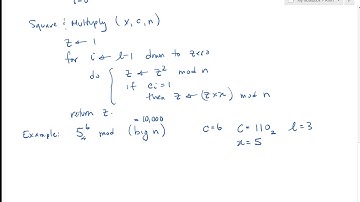 Square & Multiply (x, c, n)
z ← 1
for i ← l-1 down to zero
do { z ← z² mod n
if cᵢ = 1
then z ← (z × x) mod n
return z.
= 10,000
Example: 5⁶ mod (big n) c=6 c = 110₂ l=3
x = 5